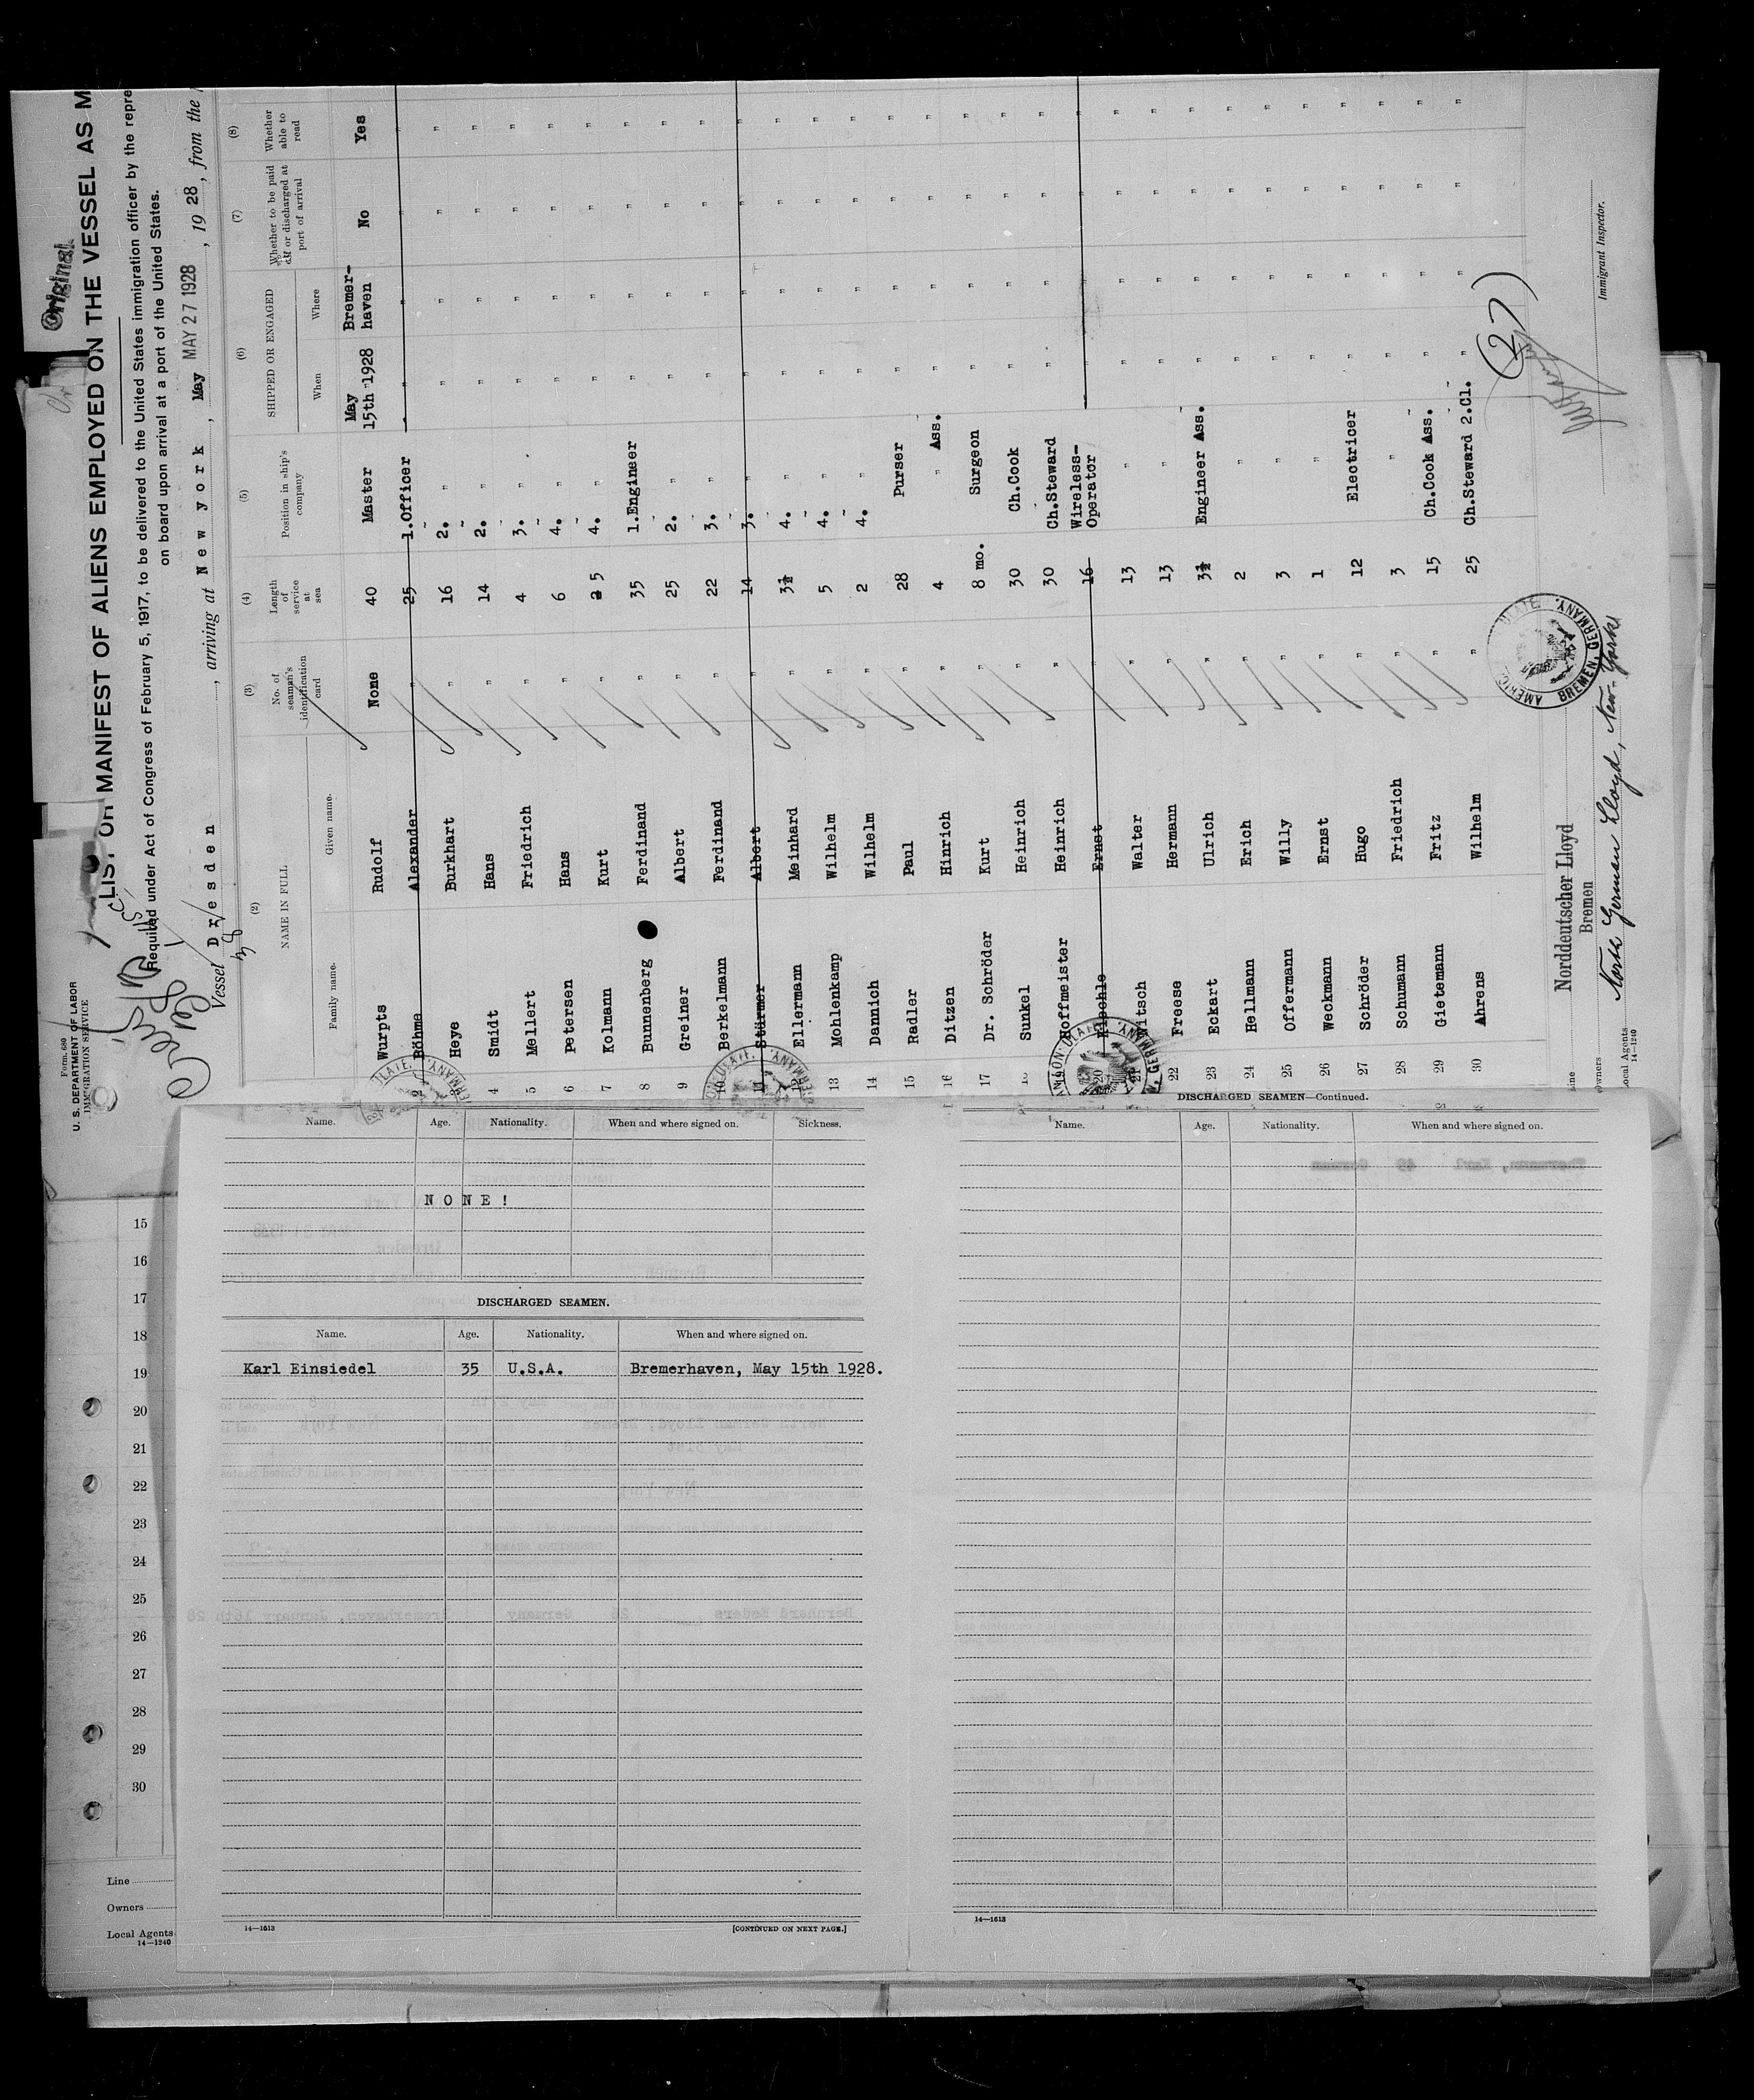 Original
Form 680
U. S. DEPARTMENT OF LABOR
IMMIGRATION SERVICE
LIST OR MANIFEST OF ALIENS EMPLOYED ON THE VESSEL AS M
Required under Act of Congress of February 5, 1917, to be delivered to the United States immigration officer by the repre
on board upon arrival at a port of the United States.
Vessel Dresden , arriving at New york , May MAY 27 1928 , 19 28 , from the
(2) (3) (4) (5) (6) (7) (8)
NAME IN FULL No. of seaman's identification card Length of service at sea Position in ship's company SHIPPED OR ENGAGED Whether to be paid off or discharged at port of arrival Whether able to read
Family name. Given name. When Where
Wurpts Rudolf None 40 Master May 15th 1928 Bremer-haven No Yes
2 Böhme Alexander " 25 1.Officer " " " "
Heye Burkhart " 16 2. " " " " "
4 Smidt Hans " 14 2. " " " " "
5 Mellert Friedrich " 4 3. " " " " "
6 Petersen Hans " 6 4. " " " " "
7 Kolmann Kurt " 2 5 4. " " " " "
8 Bunnenberg Ferdinand " 35 1.Engineer " " " "
9 Greiner Albert " 25 2. " " " " "
10 Berkelmann Ferdinand " 22 3. " " " " "
11 Stürmer Albert " 14 3. " " " " "
12 Ellermann Meinhard " 3½ 4. " " " " "
13 Mohlenkamp Wilhelm " 5 4. " " " " "
14 Dannich Wilhelm " 2 4. " " " " "
15 Radler Paul " 28 Purser " " " "
16 Ditzen Hinrich " 4 " Ass. " " " "
17 Dr. Schröder Kurt " 8 mo. Surgeon " " " "
Sunkel Heinrich " 30 Ch.Cook " " " "
19 Hoffmeister Heinrich " 30 Ch.Steward " " " "
20 Ernst " 16 Wireless-Operator " " " "
21 Witsch Walter " 13 " " " " "
22 Freese Hermann " 13 " " " " "
23 Eckart Ulrich " 3½ Engineer Ass. " " " "
24 Hellmann Erich " 2 " " " " "
25 Offermann Willy " 3 " " " " "
26 Weckmann Ernst " 1 " " " " "
27 Schröder Hugo " 12 Electricer " " " "
28 Schumann Friedrich " 3 " " " " "
29 Gietemann Fritz " 15 Ch.Cook Ass. " " " "
30 Ahrens Wilhelm " 25 Ch.Steward 2.Cl. " " " "
(27)
BREMEN, GERMANY.
Norddeutscher Lloyd
Bremen
Owners
Local Agents North German Lloyd, New-York
14-1240
Immigrant Inspector.
Name. Age. Nationality. When and where signed on. Sickness.
NONE!
DISCHARGED SEAMEN.
Name. Age. Nationality. When and where signed on.
Karl Einsiedel 35 U.S.A. Bremerhaven, May 15th 1928.
14—1613 [CONTINUED ON NEXT PAGE.]
DISCHARGED SEAMEN—Continued.
Name. Age. Nationality. When and where signed on.
14—1613
15
16
17
18
19
20
21
22
23
24
25
26
27
28
29
30
Line
Owners
Local Agents
14—1240